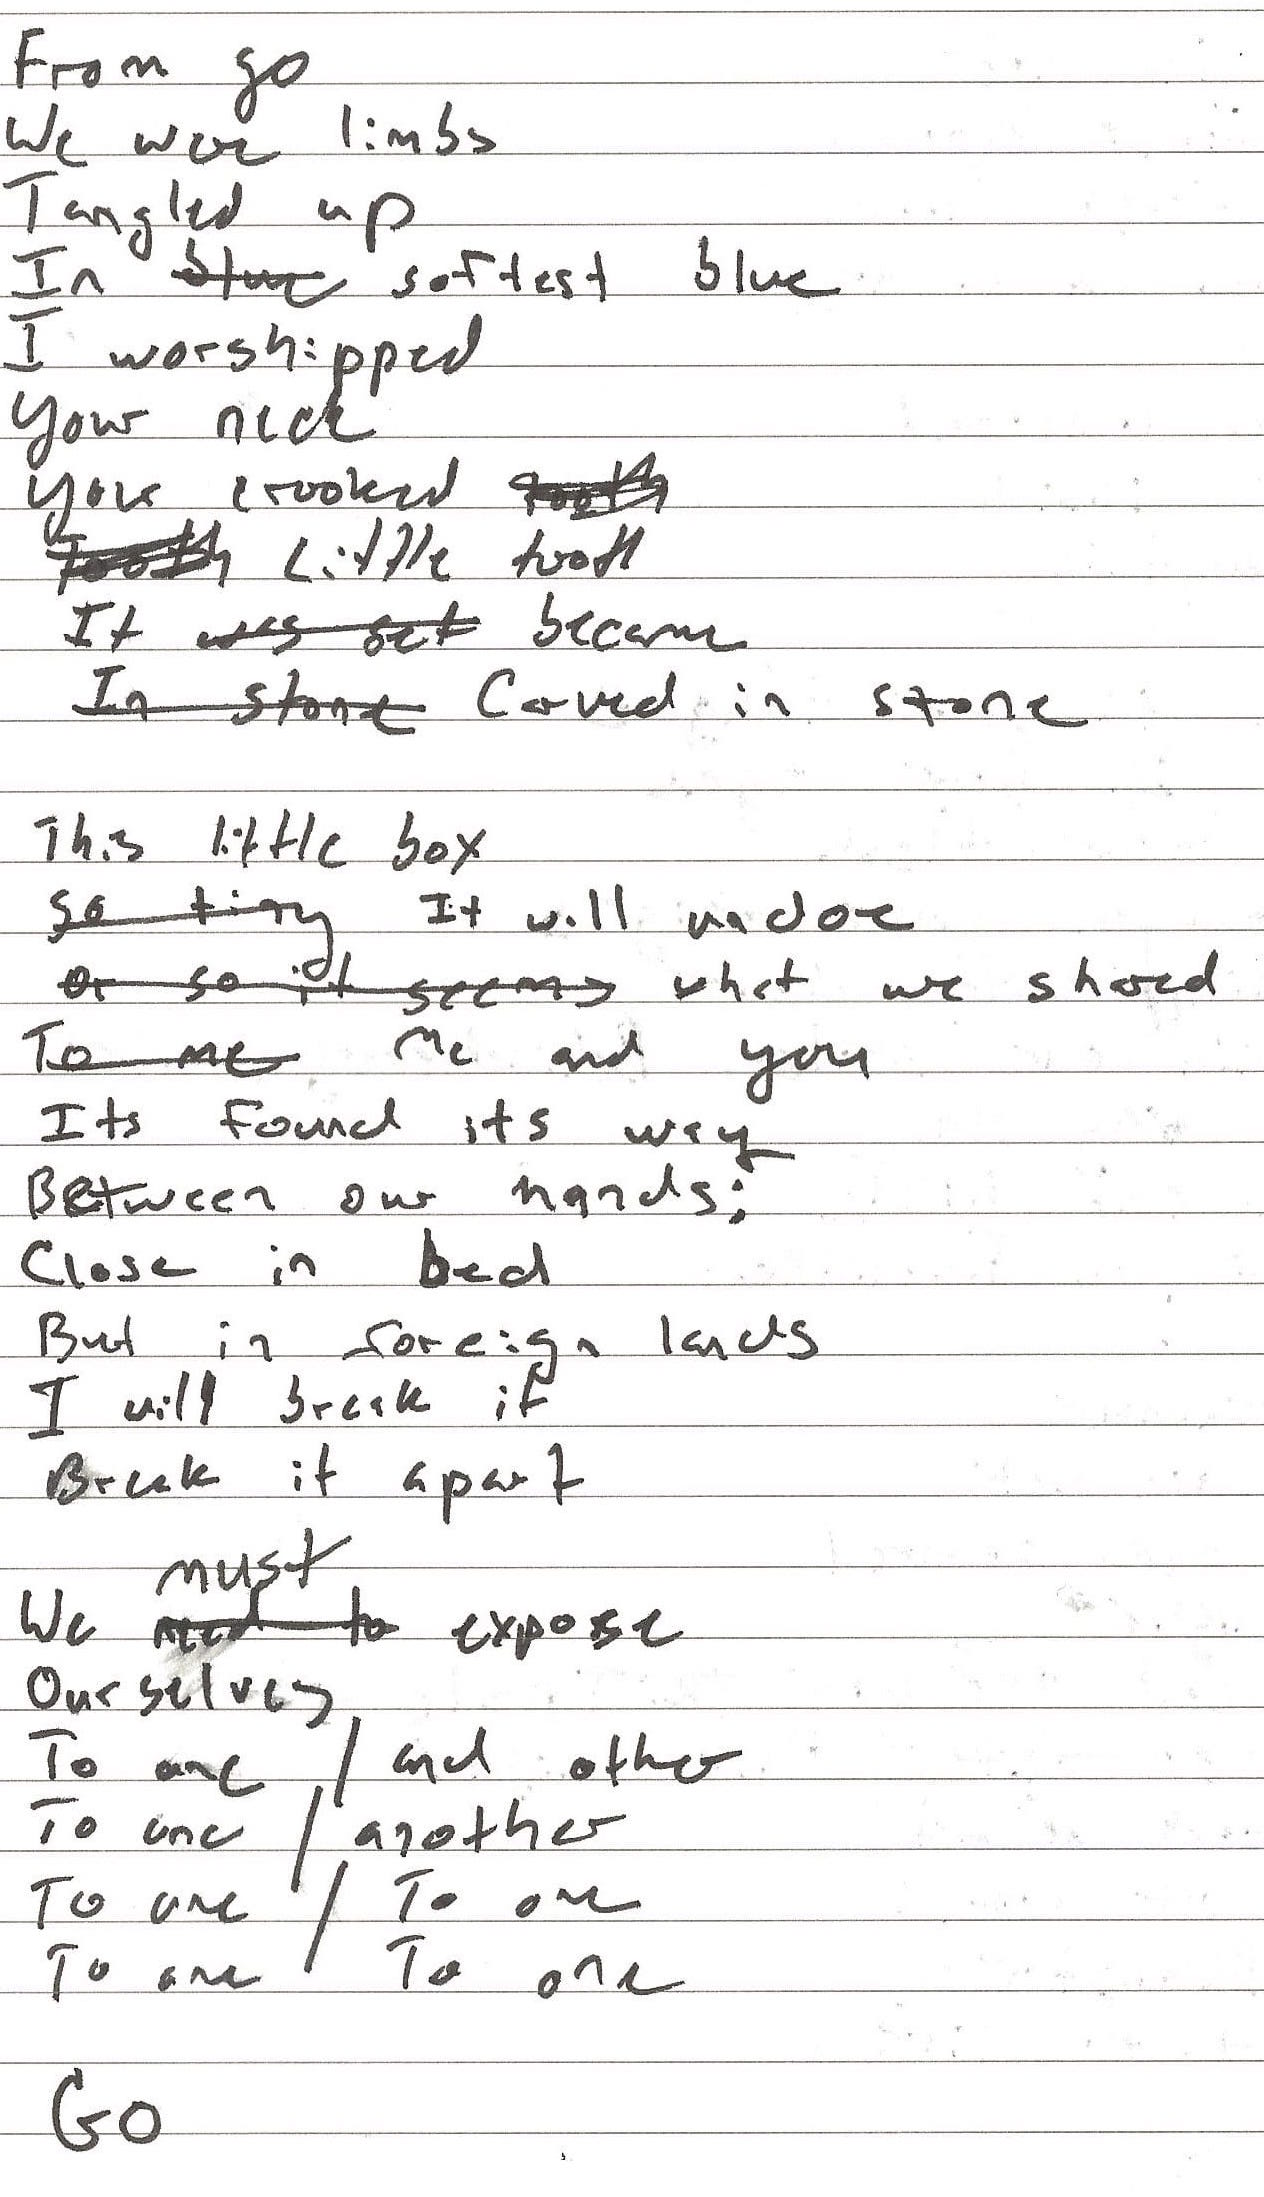 From go
We were limbs
Tangled up
In blue softest blue
I worshipped
Your neck
Your crooked tooth
Tooth Little tooth
It was set became
In stone Carved in stone
This little box
So tiny It will undoe
Or so it seems what we shared
To me Me and you
Its found its way
Between our hands;
Close in bed
But in foreign lands
I will break it
Break it apart
must
We need to expose
Ourselves
To one / and other
To one / another
To one / To one
To one / To one
GO